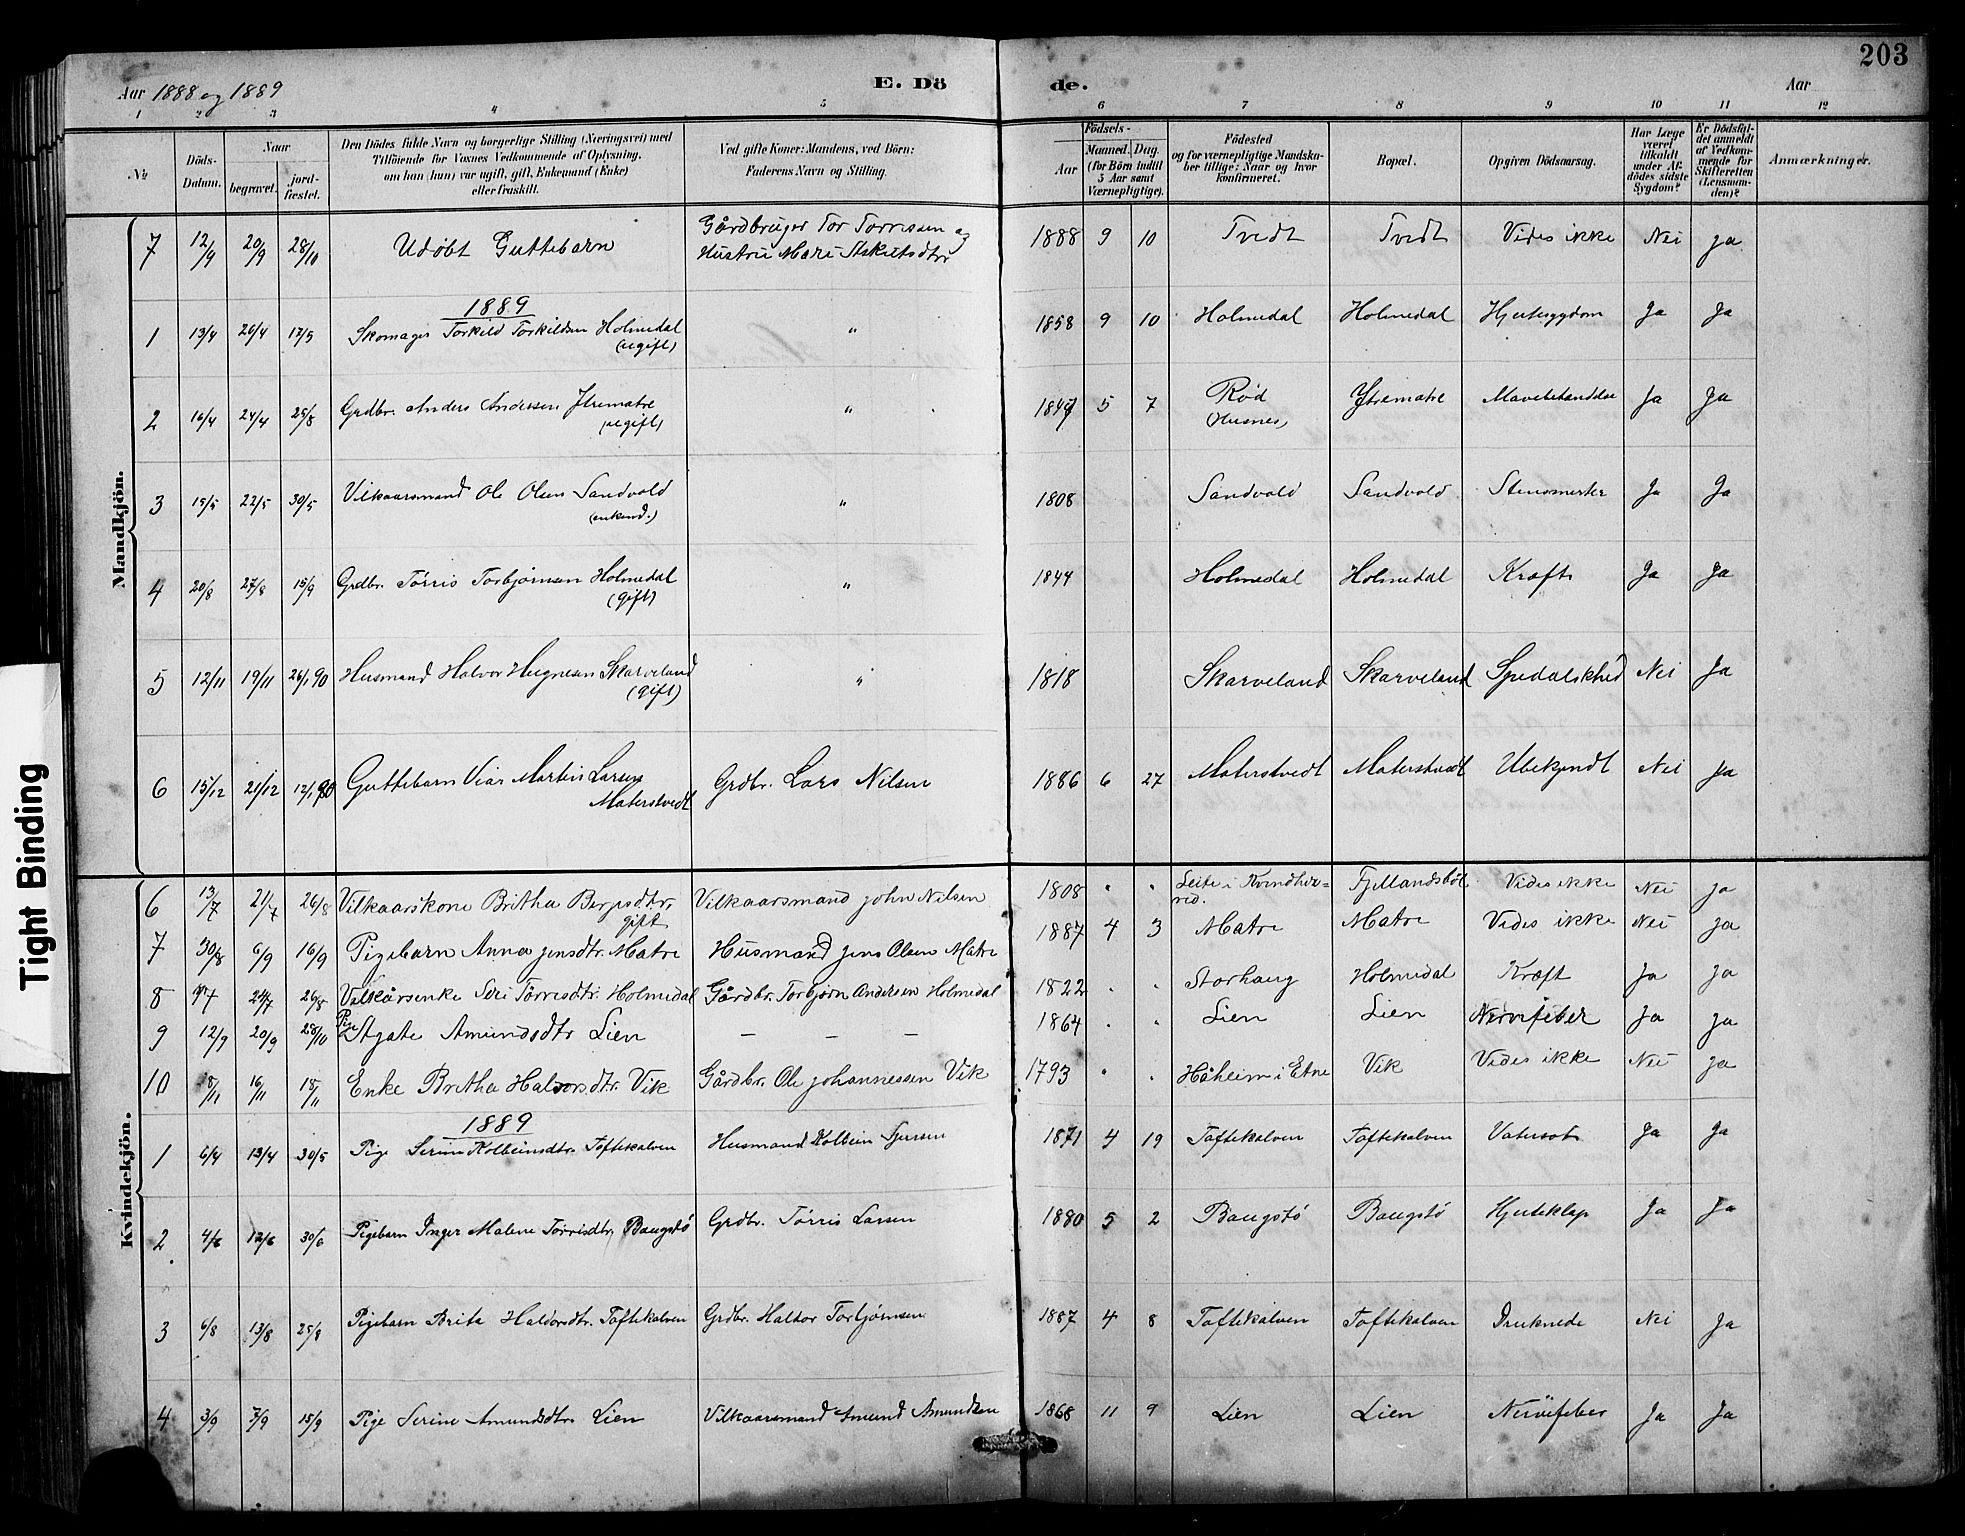 203
Aar 1888 og 1889
E. Dö
de.
Aar
1 2 3 4 5 6 7 8 9 10 11 12
№
Döds-Datum.
Naar
begravet.
jord-fæstet.
Den Dödes fulde Navn og borgerlige Stilling (Næringsvei) med
Tilföiende for Voxnes Vedkommende af Oplysning,
om han (hun) var ugift, gift, Enkemand (Enke)
eller fraskilt.
Ved gifte Koner: Mandens, ved Börn:
Faderens Navn og Stilling.
Födsels-
Aar
Maaned. Dag.
(for Börn indtil
5 Aar samt
Værnepligtige).
Födested
og for værnepligtige Mandska-
ber tillige: Naar og hvor
konfirmeret.
Bopæl.
Opgiven Dödsaarsag.
Har Læge
været
tilkaldt
under Af-
dödes sidste
Sygdom?
Er Dödsfal-
det anmeldt
af Vedkom-
mende for
Skifteretten
(Lensman-
den)?
Anmærkninger.
Mandkjön.
7 12/9 20/9 28/10 Udöbt Guttebarn Gårdbruger Tor Torrissen og
Hustru Mari Askiltsdtr 1888 9 10 Tvedt Tvedt Vides ikke Nei ja
1889
1 13/4 26/4 17/5 Skomager Torkild Torkildsen Holmedal
(ugift) " 1858 9 10 Holmedal Holmedal Hjertesygdom Ja Ja
2 16/4 24/4 25/8 Grdbr. Anders Andersen Ytrematre
(ugift) " 1847 5 7 Rød
(Husnes) Ytrematre Mavebetændelse Ja Ja
3 15/5 22/5 30/5 Vilkaarsmand Ole Olsen Sandvold
(enkemd.) " 1808 Sandvold Sandvold Stensmerter Ja Ja
4 20/8 27/8 15/9 Grdbr. Törris Torbjörnsen Holmedal
(gift) " 1844 Holmedal Holmedal Kræft Ja Ja
5 12/11 19/11 26/1 90 Husmand Halvor Hugnesen Skarveland
(gift) " 1818 Skarveland Skarveland Spedalskhed Nei Ja
6 15/12 21/12 12/1 90 Guttebarn Martin Larsen
Materstvedt Grdbr. Lars Nilsen 1886 6 27 Materstvedt Materstvedt Ubekjendt Nei Ja
Kvindekjön.
6 13/7 21/7 26/8 Vilkaarskone Britha Bergesdtr.
gift Vilkaarsmand john Nilsen 1808 " " Leite i Kvindher-
red. Fjellandsböl Vides ikke Nei ja
7 30/8 6/9 16/9 Pigebarn Anna jensdtr. Matre Husmand jens Olsen Matre 1887 4 3 Matre Matre Vides ikke Nei ja
8 24/7 26/8 Vilkårsenke Seri Törrisdtr. Holmedal Gårdbr. Torbjörn Andersen Holmedal 1822 " " Storhaug Holmedal Kræft Ja ja
9 12/9 20/9 28/10 Pige Agate Amundsdtr Lien — — — 1864 " " Lien Lien Nervefeber Ja ja
10 8/11 16/11 18/11 Enke Britha Halvorsdtr. Vik Gårdbr. Ole johannessen Vik 1793 " " Håheim i Etne Vik Vides ikke Nei ja
1889
1 6/4 13/4 30/5 Pige Serine Kolbeinsdtr. Toftekalven Husmand Kolbein 1871 4 19 Toftekalven Toftekalven Vatersot Ja Ja
2 4/6 12/6 30/6 Pigebarn Inger Malene Törrisdtr. Baugstö Grdbr. Törris Larsen 1880 5 2 Baugstö Baugstö Hjerteklap Ja Ja
3 6/8 13/8 25/8 Pigebarn Brita Haldorsdtr. Toftekalven Grdbr. Haldor Torbjörnsen 1887 4 8 Toftekalven Toftekalven Druknede Nei Ja
4 3/9 7/9 15/9 Pige Serine Amundsdtr. Lien Vilkaarsmand Amund Amundsen 1868 11 9 Lien Lien Nervefeber Ja Ja
Tight Binding